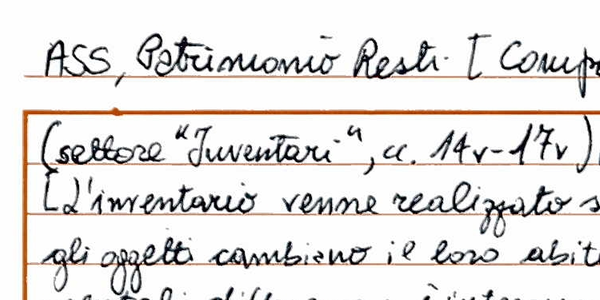 ASS, Patrimonio Resti. [ Comp
(settore "Inventari", cc. 14v-17v)
[L'inventario venne realizzato s
gli oggetti cambiano il loro abit